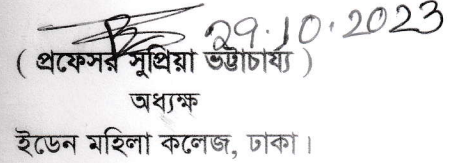 29.10.2023
( প্রফেসর সুপ্রিয়া ভট্টাচার্য্য )
অধ্যক্ষ
ইডেন মহিলা কলেজ, ঢাকা।